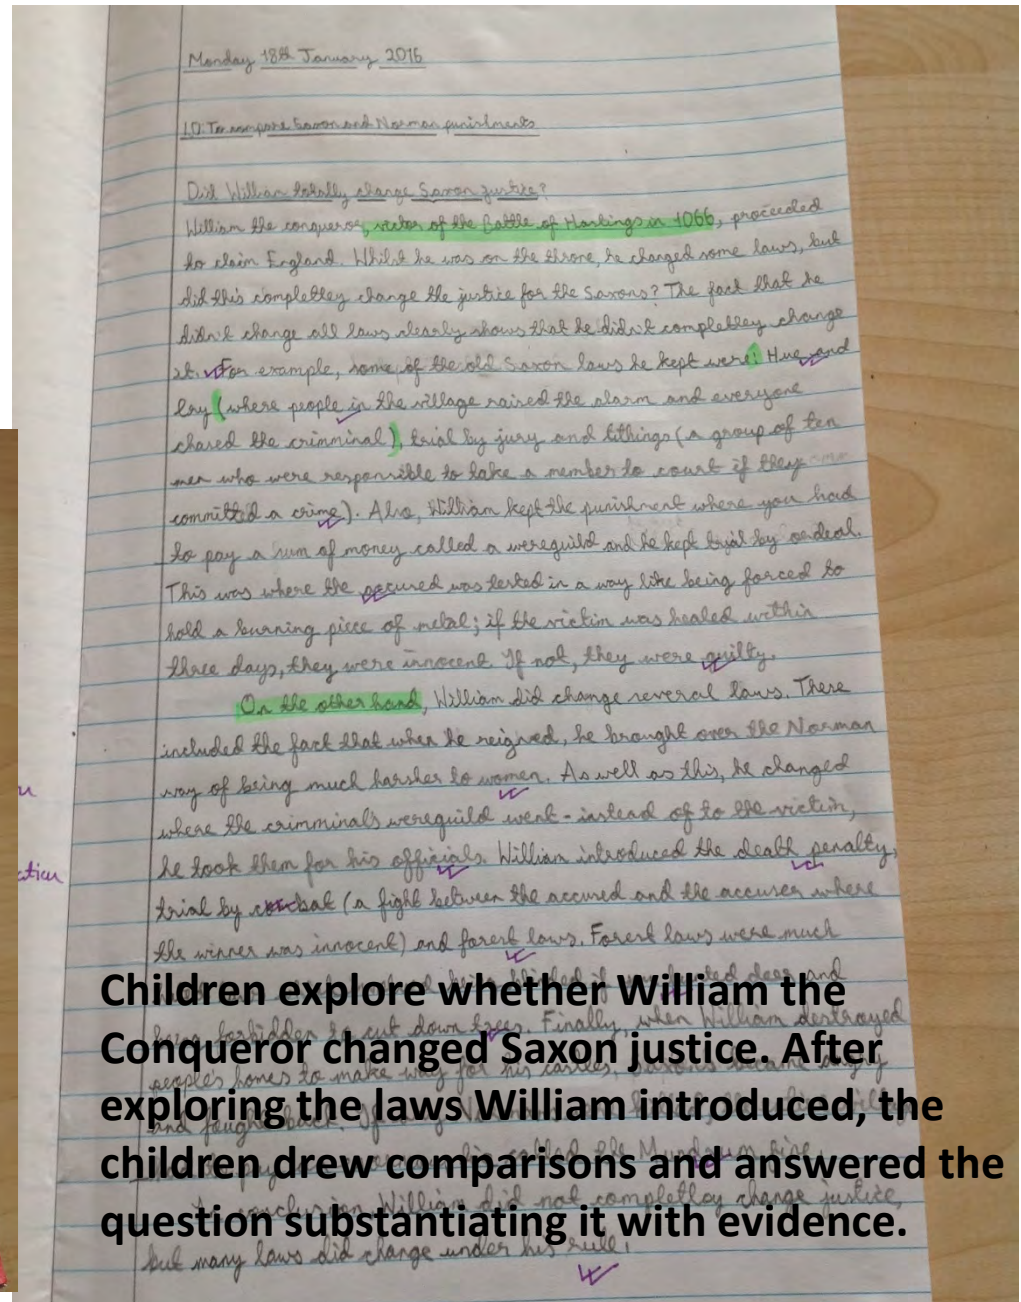 Monday 18th January 2016
LO: To compare Saxon and Norman punishments
Did William totally change Saxon justice?
William the conqueror, victor of the Battle of Hastings in 1066, proceeded
to claim England. Whilst he was on the throne, he changed some laws, but
did this completley change the justice for the Saxons? The fact that he
didn't change all laws clearly shows that he didn't completley change
it. For example, some of the old Saxon laws he kept were: Hue and
Cry (where people in the village raised the alarm and everyone
chased the crimminal), trial by jury and tithings (a group of ten
men who were responsible to take a member to court if they
committed a crime). Also, William kept the punishment where you had
to pay a sum of money called a wereguild and he kept trial by ordeal.
This was where the accused was tested in a way like being forced to
hold a burning piece of metal; if the victim was healed within
three days, they were innocent. If not, they were guilty.
On the other hand, William did change several laws. These
included the fact that when he reigned, he brought over the Norman
way of being much harsher to women. As well as this, he changed
where the crimminals wereguild went - instead of to the victim,
he took them for his officials. William introduced the death penalty,
trial by combat (a fight between the accused and the accuser where
the winner was innocent) and forest laws. Forest laws were much
being blinded if you hunted deer and
being forbidden to cut down trees. Finally, when William destroyed
people's homes to make way for his castles, Saxons became angry
and fought back. If any
called the Murdrum fine.
In conclusion, William did not completley change justice,
but many laws did change under his rule.
Children explore whether William the
Conqueror changed Saxon justice. After
exploring the laws William introduced, the
children drew comparisons and answered the
question substantiating it with evidence.